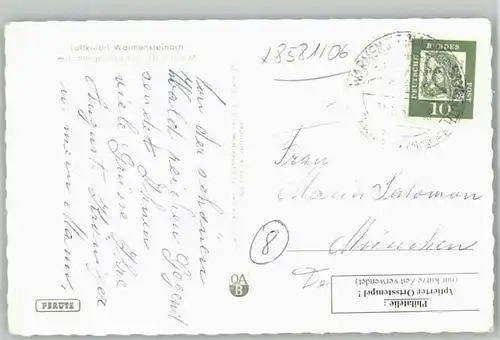 Luftkurort Warmensteinach
Von der schönen
Wald reichen Gegend
sendet Ihnen
viele Grüsse Ihre
August Krüniger
u. mein Mann.
x8581106
DEUTSCHE BUNDES POST
10
Frau
Maria Salomon
(8) München
De
OA
B
PERUTZ
Philatelie :
Aptierter Ortsstempel !
(nur kurze Zeit verwendet)